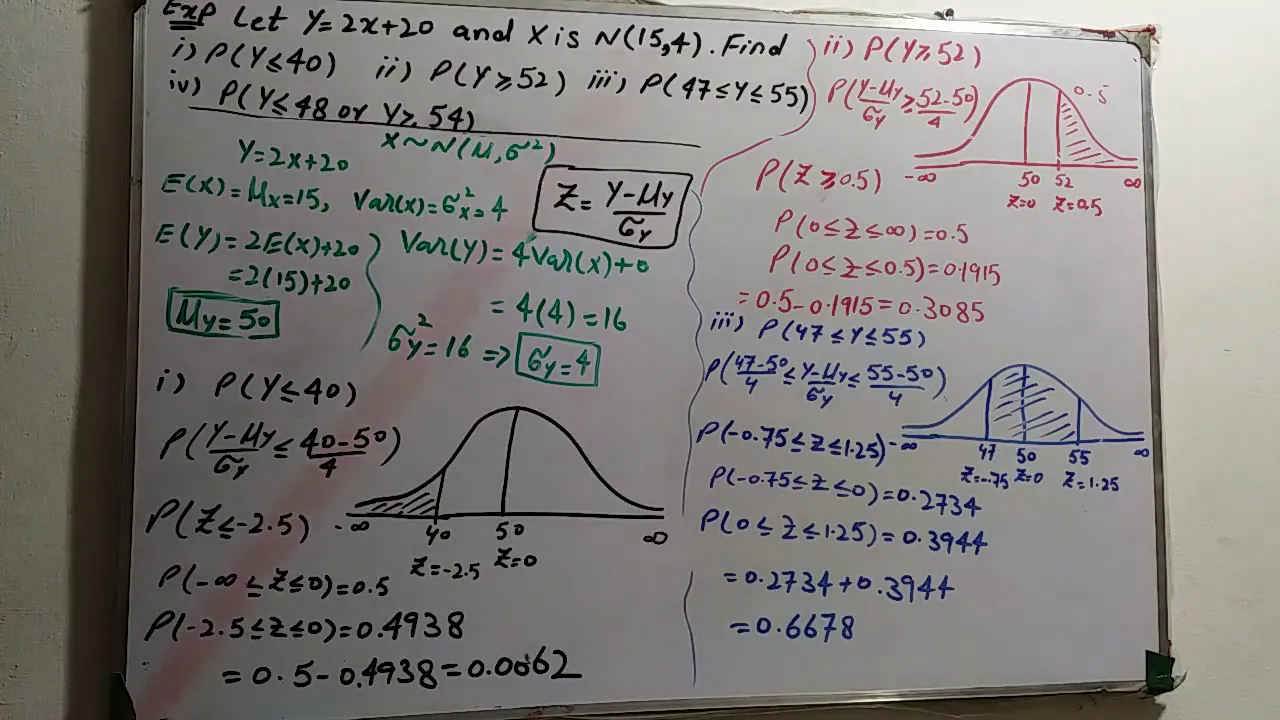 Exp Let Y=2x+20 and X is N(15,4). Find
i) P(Y≤40) ii) P(Y≥52) iii) P(47≤Y≤55)
iv) P(Y≤48 or Y≥54)
X~N(M,σ²)
Y=2x+20
E(X)=Mx=15, Var(x)=σx²=4
Z=Y-My/σy
E(Y)=2E(X)+20
=2(15)+20
My=50
Var(Y)=4Var(x)+0
=4(4)=16
σy²=16 => σy=4
i) P(Y≤40)
P(Y-My/σy≤40-50/4)
P(Z≤-2.5)
-∞ 40 50 ∞
Z=-2.5 Z=0
P(-∞≤Z≤0)=0.5
P(-2.5≤Z≤0)=0.4938
=0.5-0.4938=0.0062
ii) P(Y≥52)
P(Y-My/σy≥52-50/4)
0.5
P(Z≥0.5)
-∞ 50 52 ∞
Z=0 Z=0.5
P(0≤Z≤∞)=0.5
P(0≤Z≤0.5)=0.1915
=0.5-0.1915=0.3085
iii) P(47≤Y≤55)
P(47-50/4≤Y-My/σy≤55-50/4)
P(-0.75≤Z≤1.25)
-∞ 47 50 55 ∞
Z=-.75 Z=0 Z=1.25
P(-0.75≤Z≤0)=0.2734
P(0≤Z≤1.25)=0.3944
=0.2734+0.3944
=0.6678